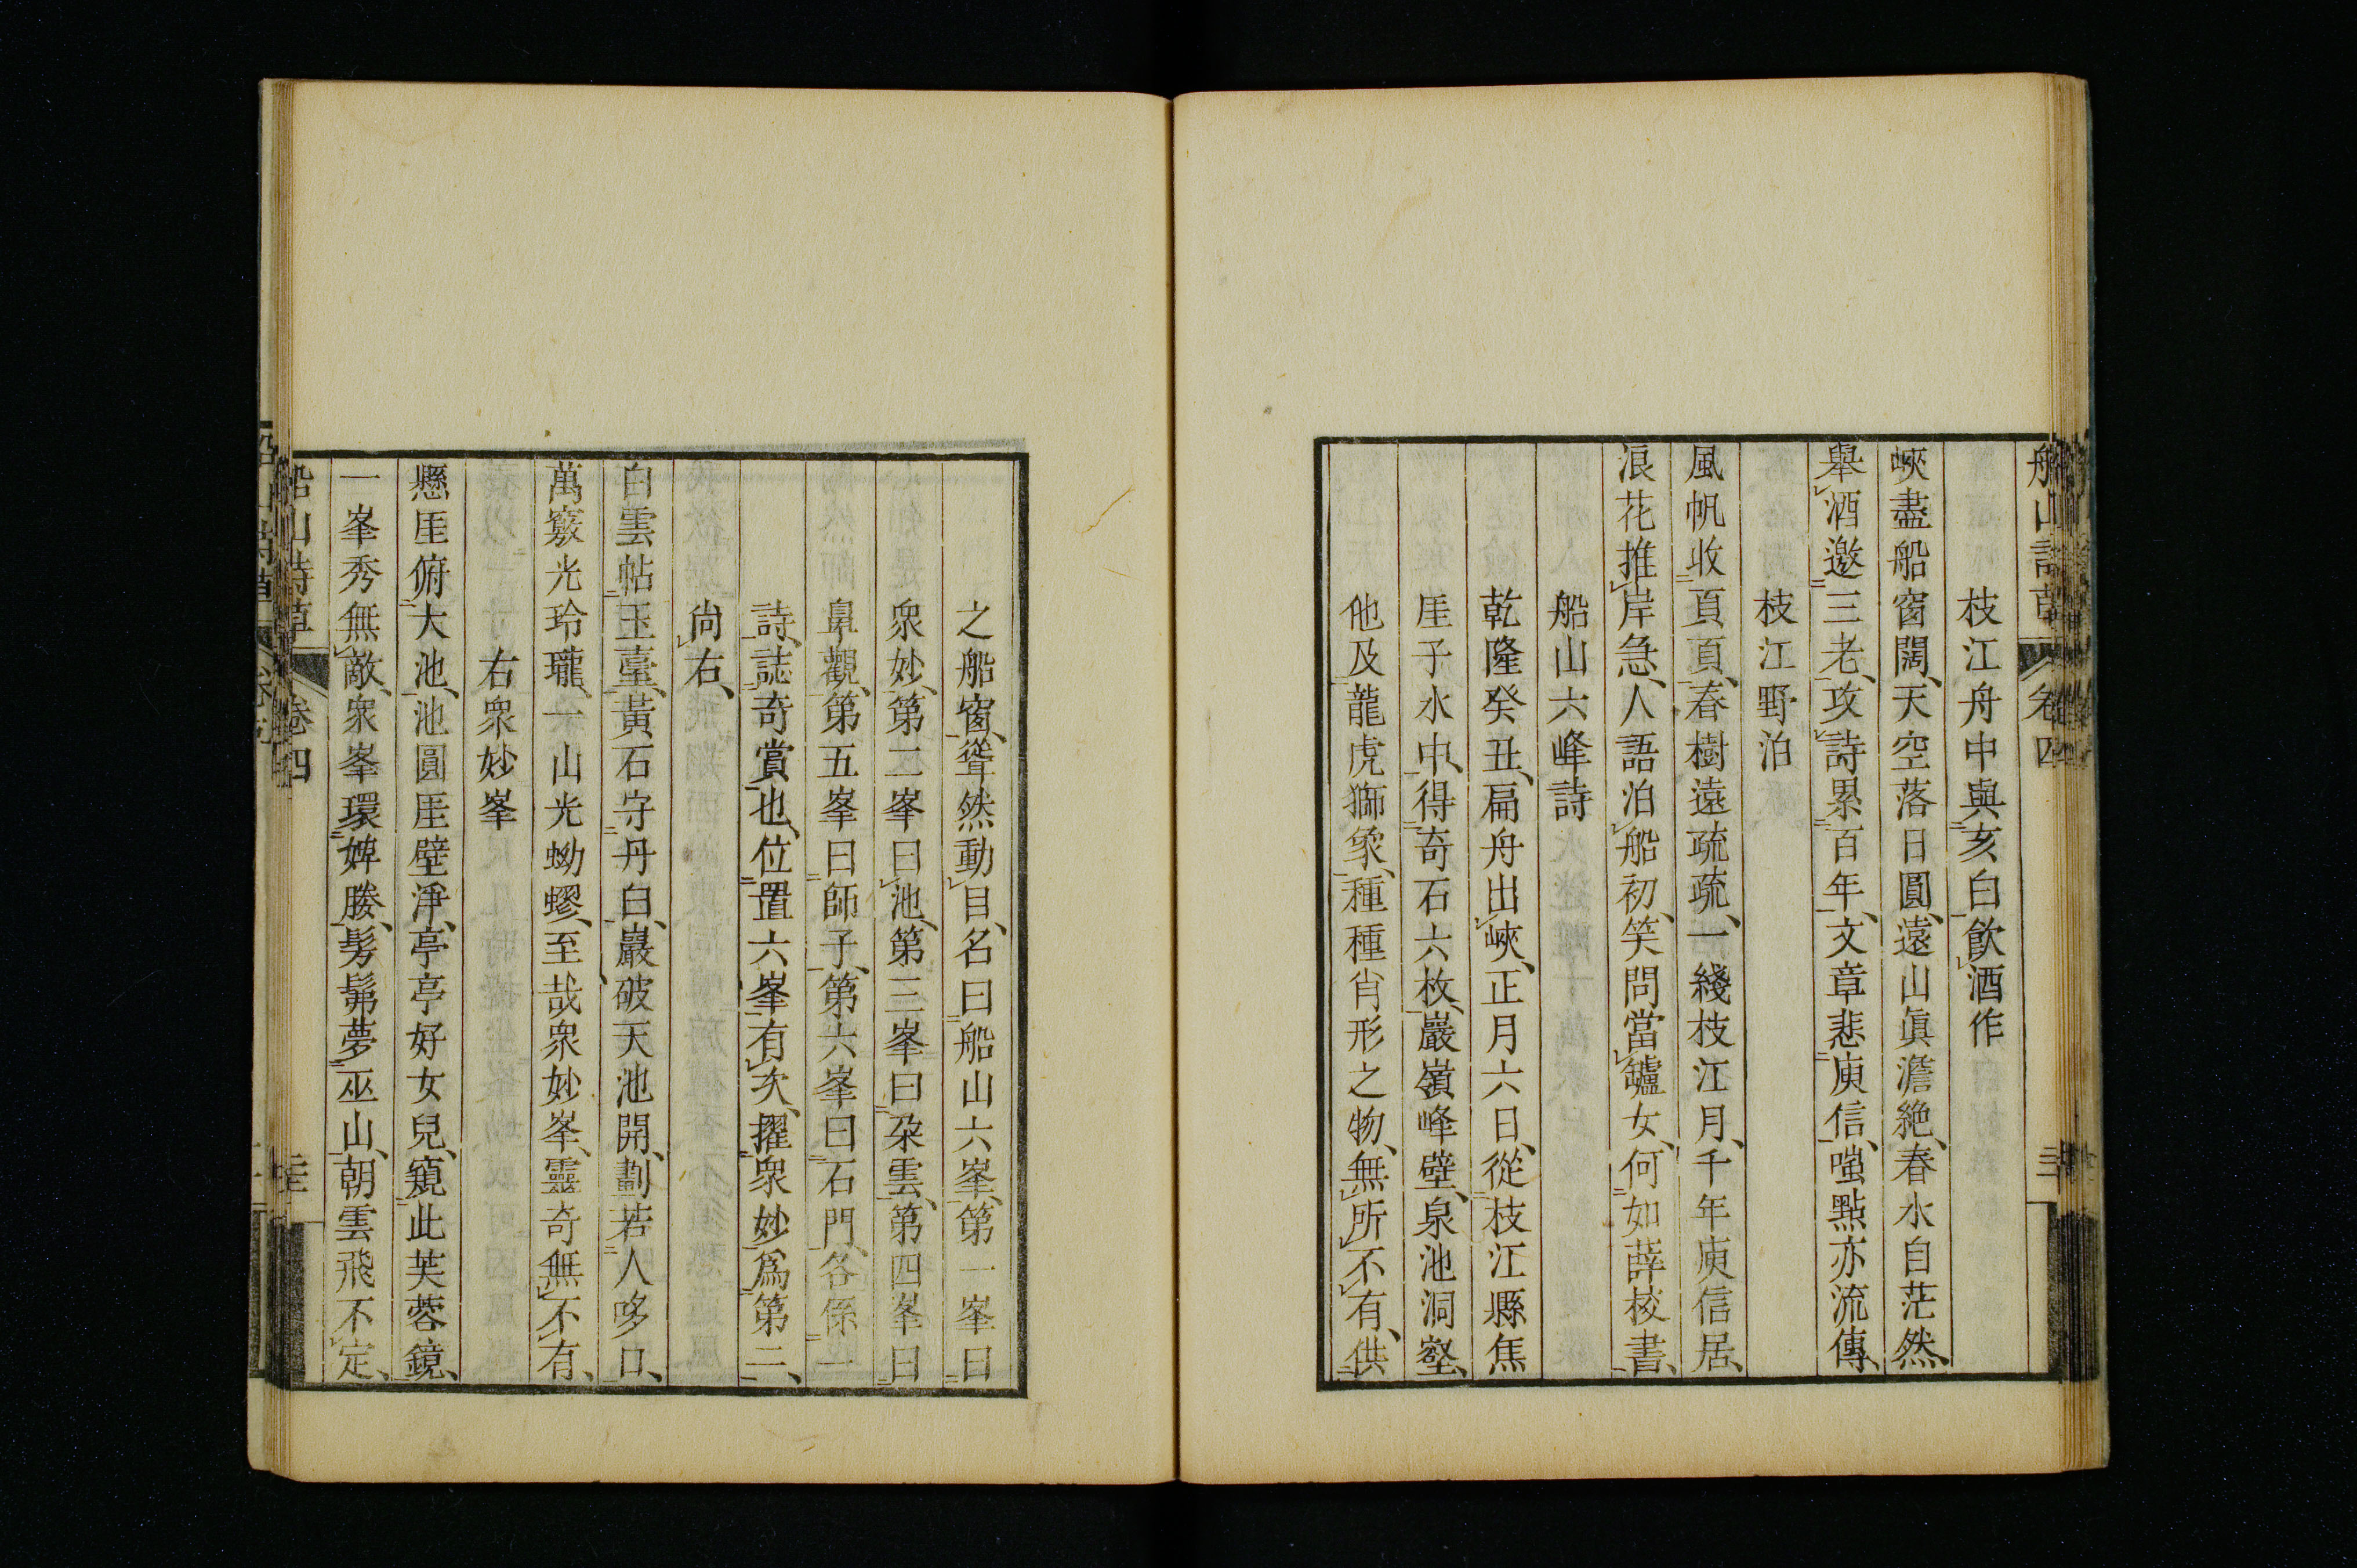 船山詩草 卷四
枝江舟中與亥白飮酒作
峽盡船窗闊、天空落日圓、遠山眞澹絶、春水自茫然、
舉酒邀三老、攻詩累百年、文章悲庾信、嗤點亦流傳、
枝江野泊
風帆收頁頁、春樹遠疏疏、一綫枝江月、千年庾信居、
浪花推岸急、人語泊船初、笑問當罏女、何如薛校書、
船山六峰詩
乾隆癸丑、扁舟出峽、正月六日、從枝江縣焦
厓子水中、得奇石六枚、巖嶺峰壁、泉池洞壑、
他及龍虎獅象、種種肖形之物、無所不有、供
之船窗、聳然動目、名曰船山六峯、第一峯曰
衆妙、第二峯曰池、第三峯曰朶雲、第四峯曰
鼻觀、第五峯曰師子、第六峯曰石門、各係一
詩、誌奇賞也、位置六峯有次、擢衆妙爲第二、
尙右、
白雲帖玉臺、黃石守丹白、巖破天池開、劃若人哆口、
萬竅光玲瓏、一山光蚴蟉、至哉衆妙峯、靈奇無不有、
右衆妙峯
懸厓俯大池、池圓厓壁淨、亭亭好女兒、窺此芙蓉鏡、
一峯秀無敵、衆峯環婢媵、髣髴夢巫山、朝雲飛不定、
船山詩草 卷四